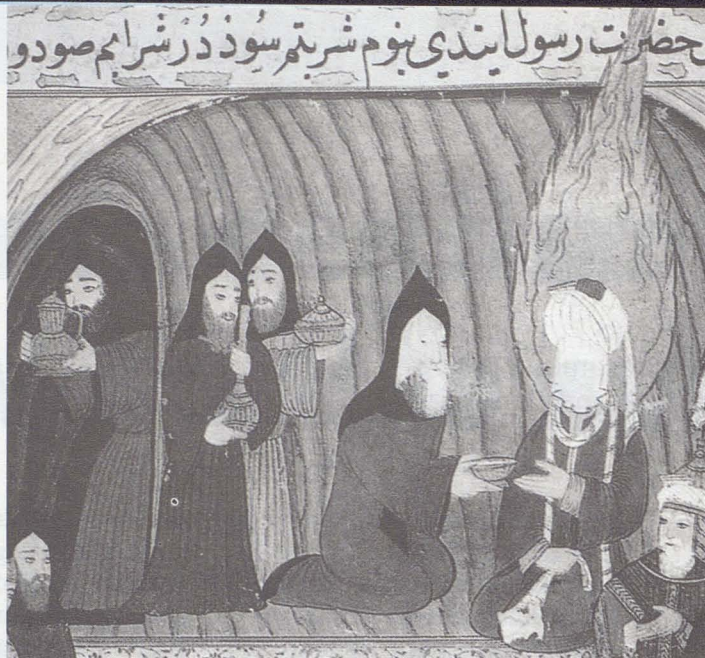 حضرت رسول ایتدی بنوم شربتم سوددر شرابم صودو